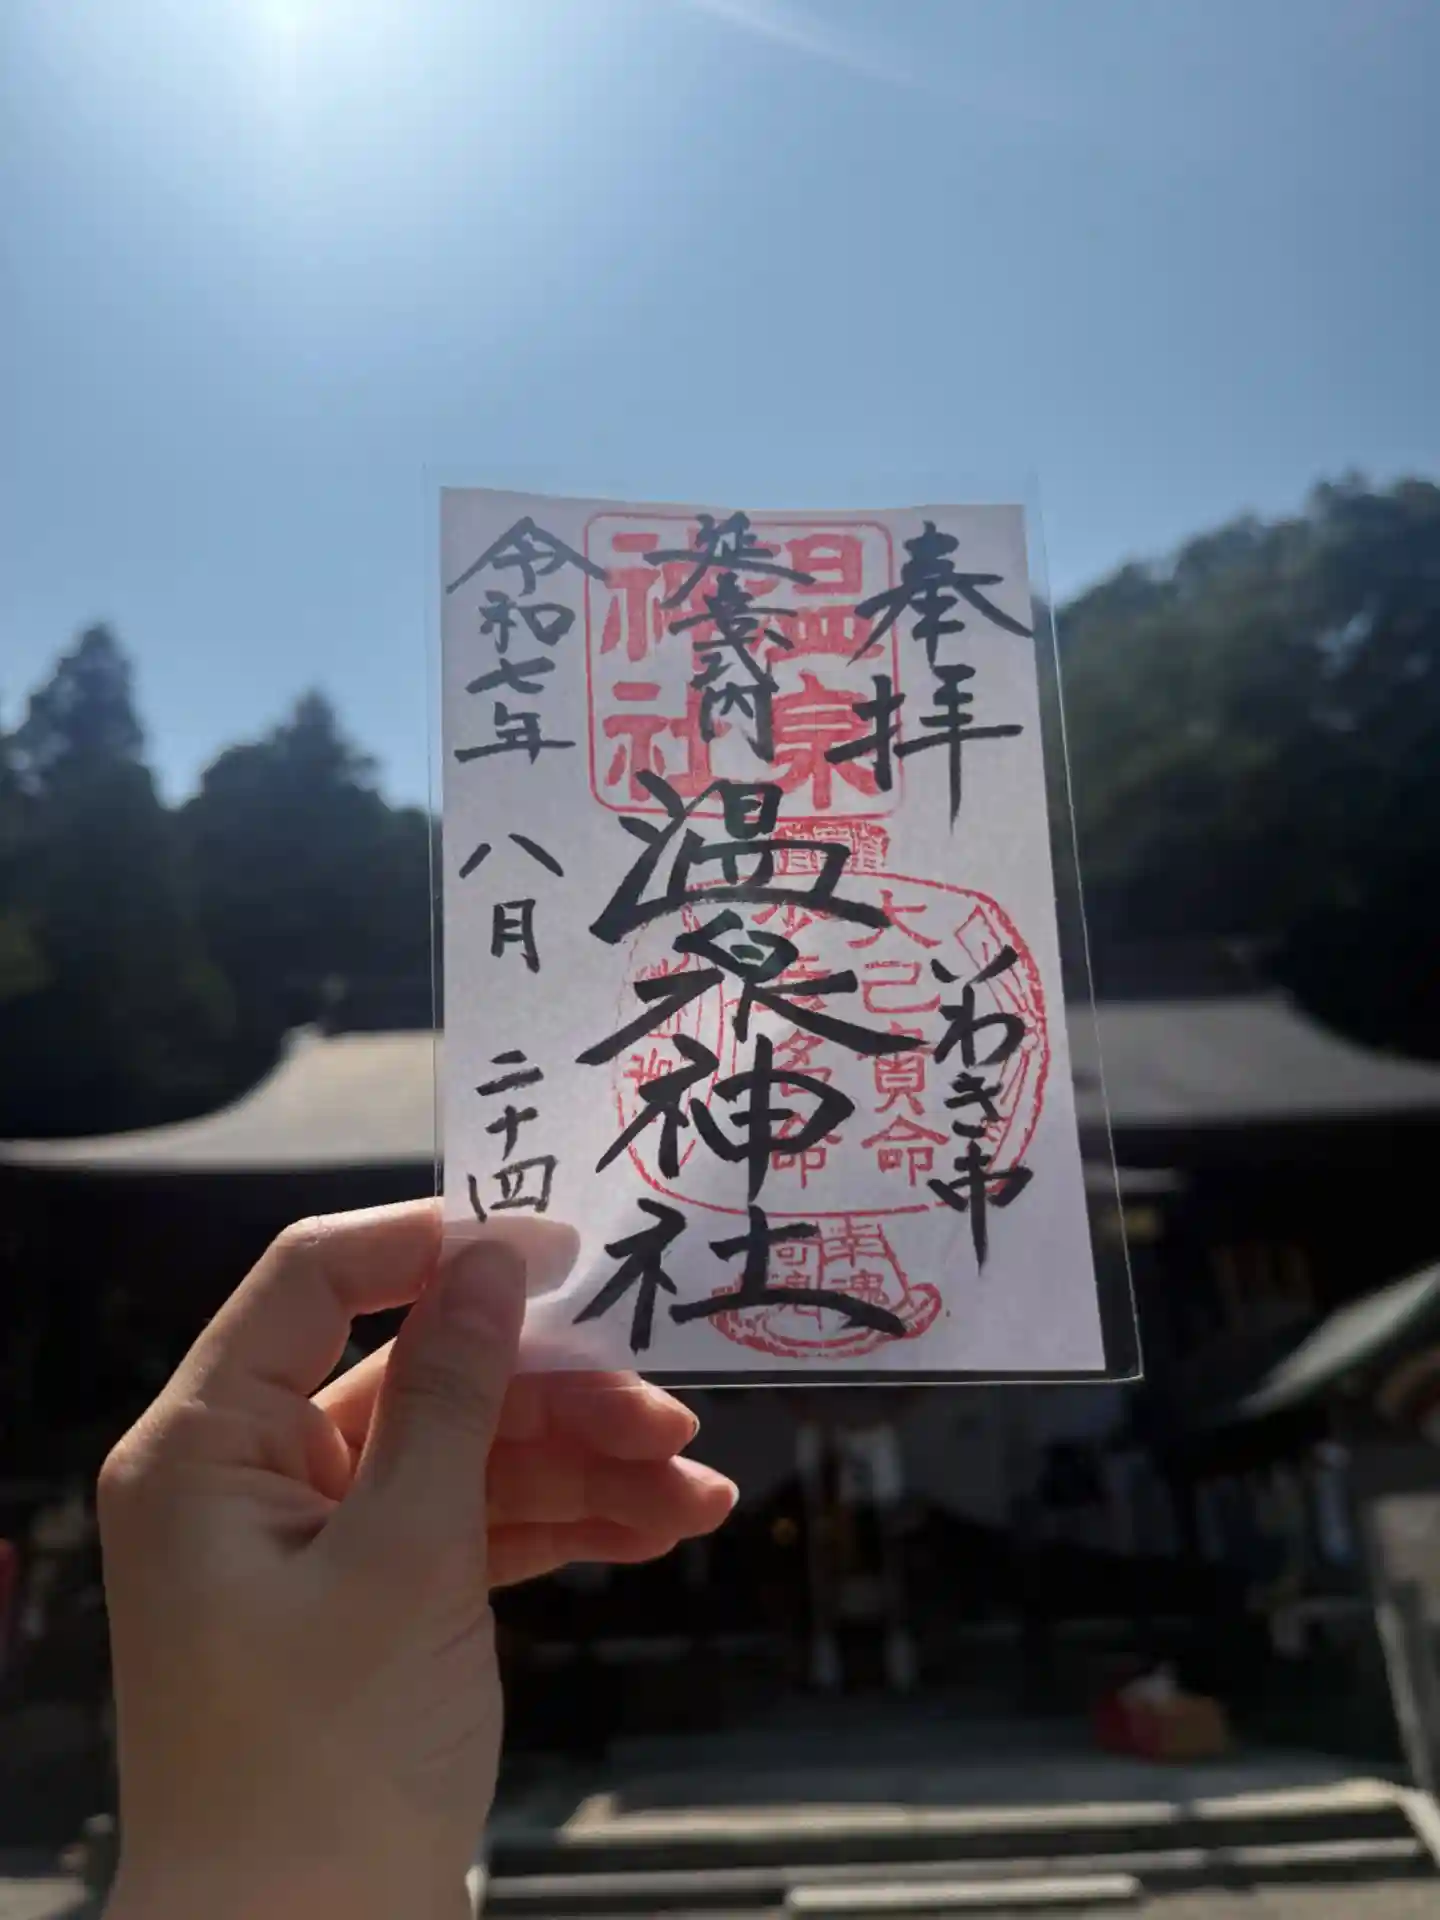 奉拝
いわき市
延喜式内
温泉神社
令和七年
八月
二十四
温泉
神社
大己貴命
少彦名命
幸魂
奇魂